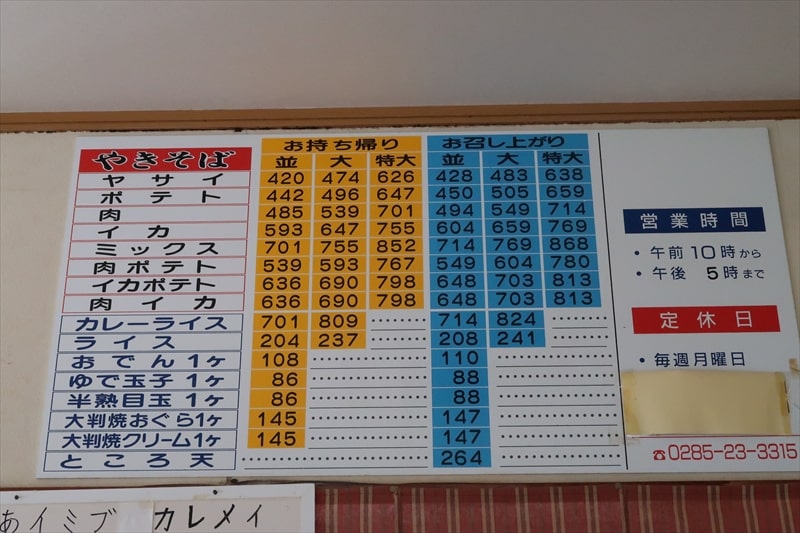 お持ち帰り お召し上がり
やきそば 並 大 特大 並 大 特大
ヤサイ 420 474 626 428 483 638
ポテト 442 496 647 450 505 659
肉 485 539 701 494 549 714
イカ 593 647 755 604 659 769
ミックス 701 755 852 714 769 868
肉ポテト 539 593 767 549 604 780
イカポテト 636 690 798 648 703 813
肉イカ 636 690 798 648 703 813
カレーライス 701 809 714 824
ライス 204 237 208 241
おでん1ヶ 108 110
ゆで玉子1ヶ 86 88
半熟目玉1ヶ 86 88
大判焼おぐら1ヶ 145 147
大判焼クリーム1ヶ 145 147
ところ天 264
営業時間
・午前10時から
・午後 5時まで
定休日
・毎週月曜日
☎0285-23-3315
あイミブ カレメイ